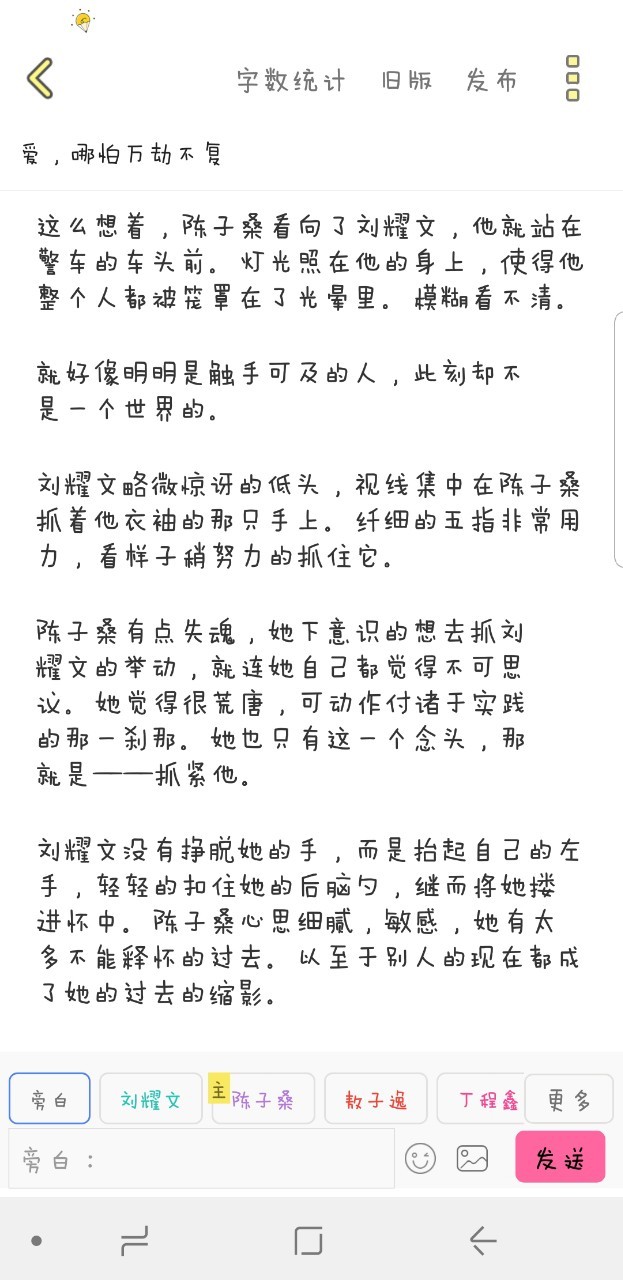 字数统计 旧版 发布
爱，哪怕万劫不复
这么想着，陈子桑看向了刘耀文，他就站在
警车的车头前。灯光照在他的身上，使得他
整个人都被笼罩在了光晕里。模糊看不清。
就好像明明是触手可及的人，此刻却不
是一个世界的。
刘耀文略微惊讶的低头，视线集中在陈子桑
抓着他衣袖的那只手上。纤细的五指非常用
力，看样子稍努力的抓住它。
陈子桑有点失魂，她下意识的想去抓刘
耀文的举动，就连她自己都觉得不可思
议。她觉得很荒唐，可动作付诸于实践
的那一刹那。她也只有这一个念头，那
就是——抓紧他。
刘耀文没有挣脱她的手，而是抬起自己的左
手，轻轻的扣住她的后脑勺，继而将她搂
进怀中。陈子桑心思细腻，敏感，她有太
多不能释怀的过去。以至于别人的现在都成
了她的过去的缩影。
旁白 刘耀文 主 陈子桑 敖子逸 丁程鑫 更多
旁白： 发送